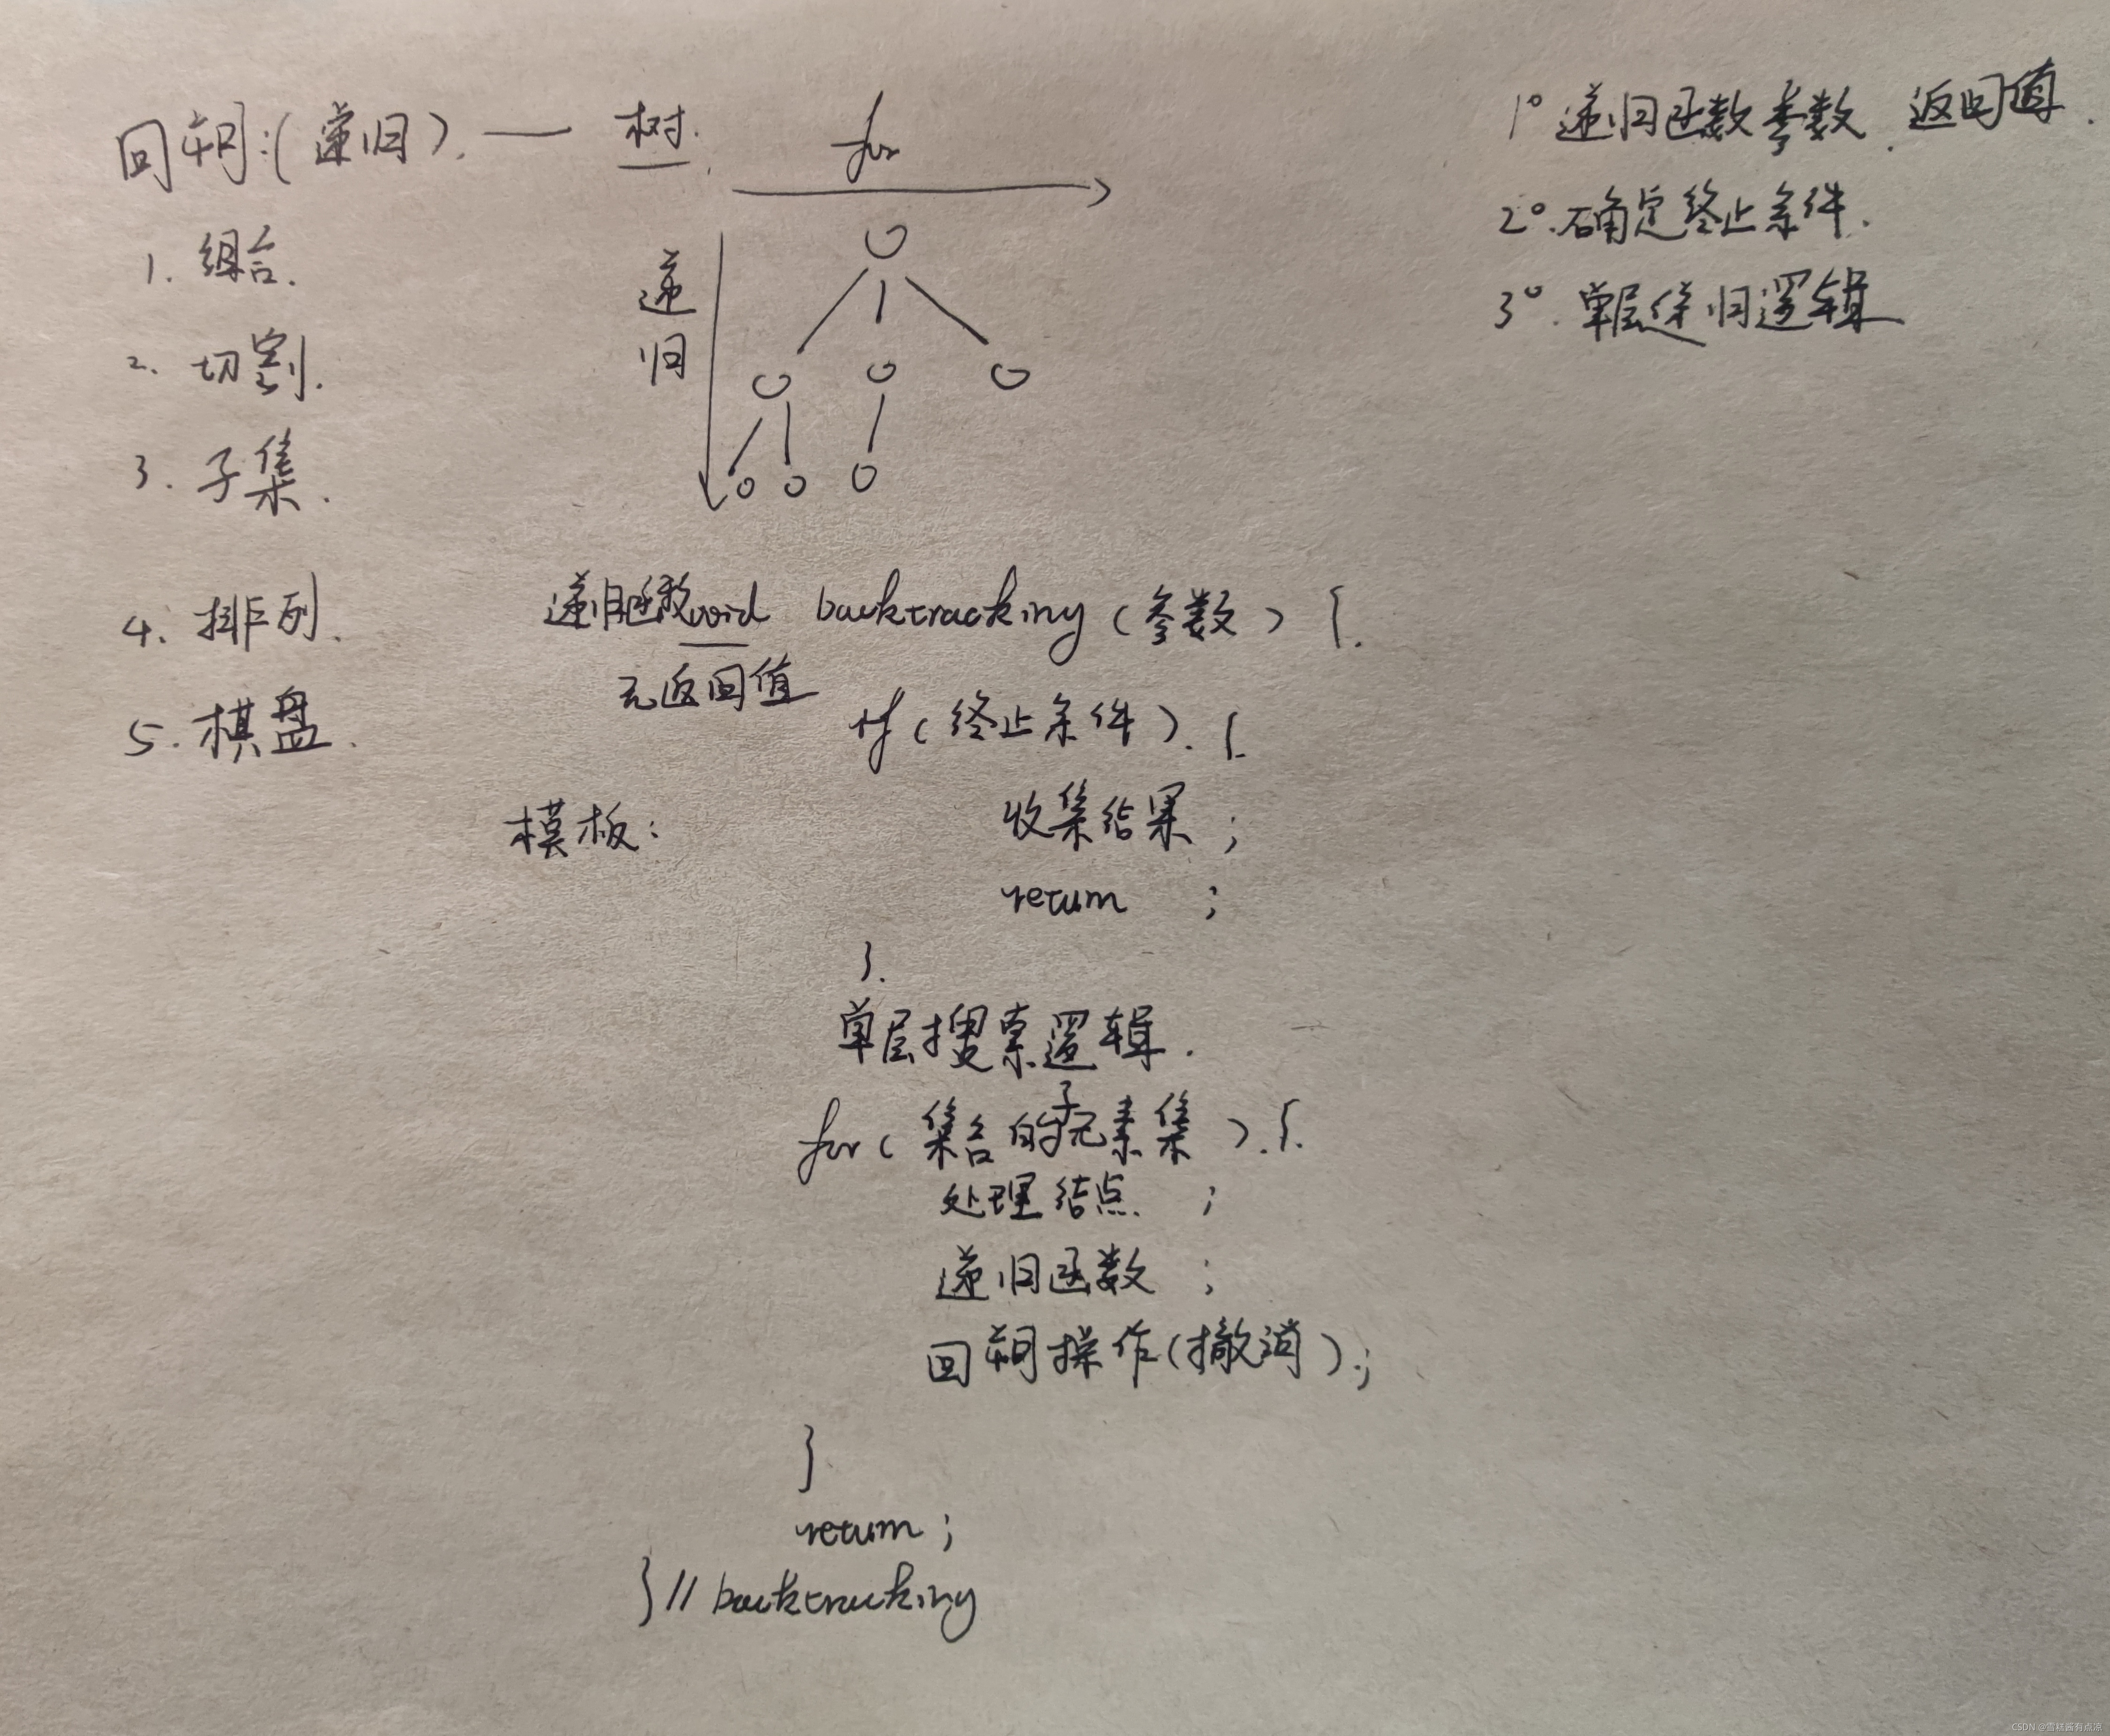 回朔:(递归). — 树.
1. 组合.
2. 切割.
3. 子集.
4. 排列.
5. 棋盘.
for
递
归
1° 递归函数参数、返回值.
2°. 确定终止条件.
3°. 单层递归逻辑
递归函数void backtracking (参数) {.
无返回值
if (终止条件). {.
模板:
收集结果 ;
return ;
}.
单层搜索逻辑.
for (集合的子元素集). {.
处理结点. ;
递归函数 ;
回朔操作(撤消).;
}
return ;
} // backtracking
CSDN @雪糕酱有点凉